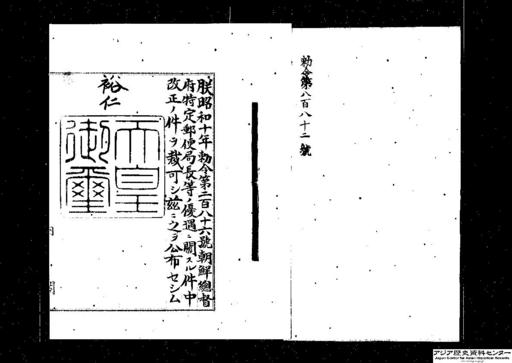 勅令第八百八十二號
朕昭和十年勅令第二百八十六號朝鮮總督
府特定郵便局長等ノ優遇ニ關スル件中
改正ノ件ヲ裁可シ茲ニ之ヲ公布セシム
裕仁
天皇
御璽
内閣
アジア歴史資料センター
Japan Center for Asian Historical Records